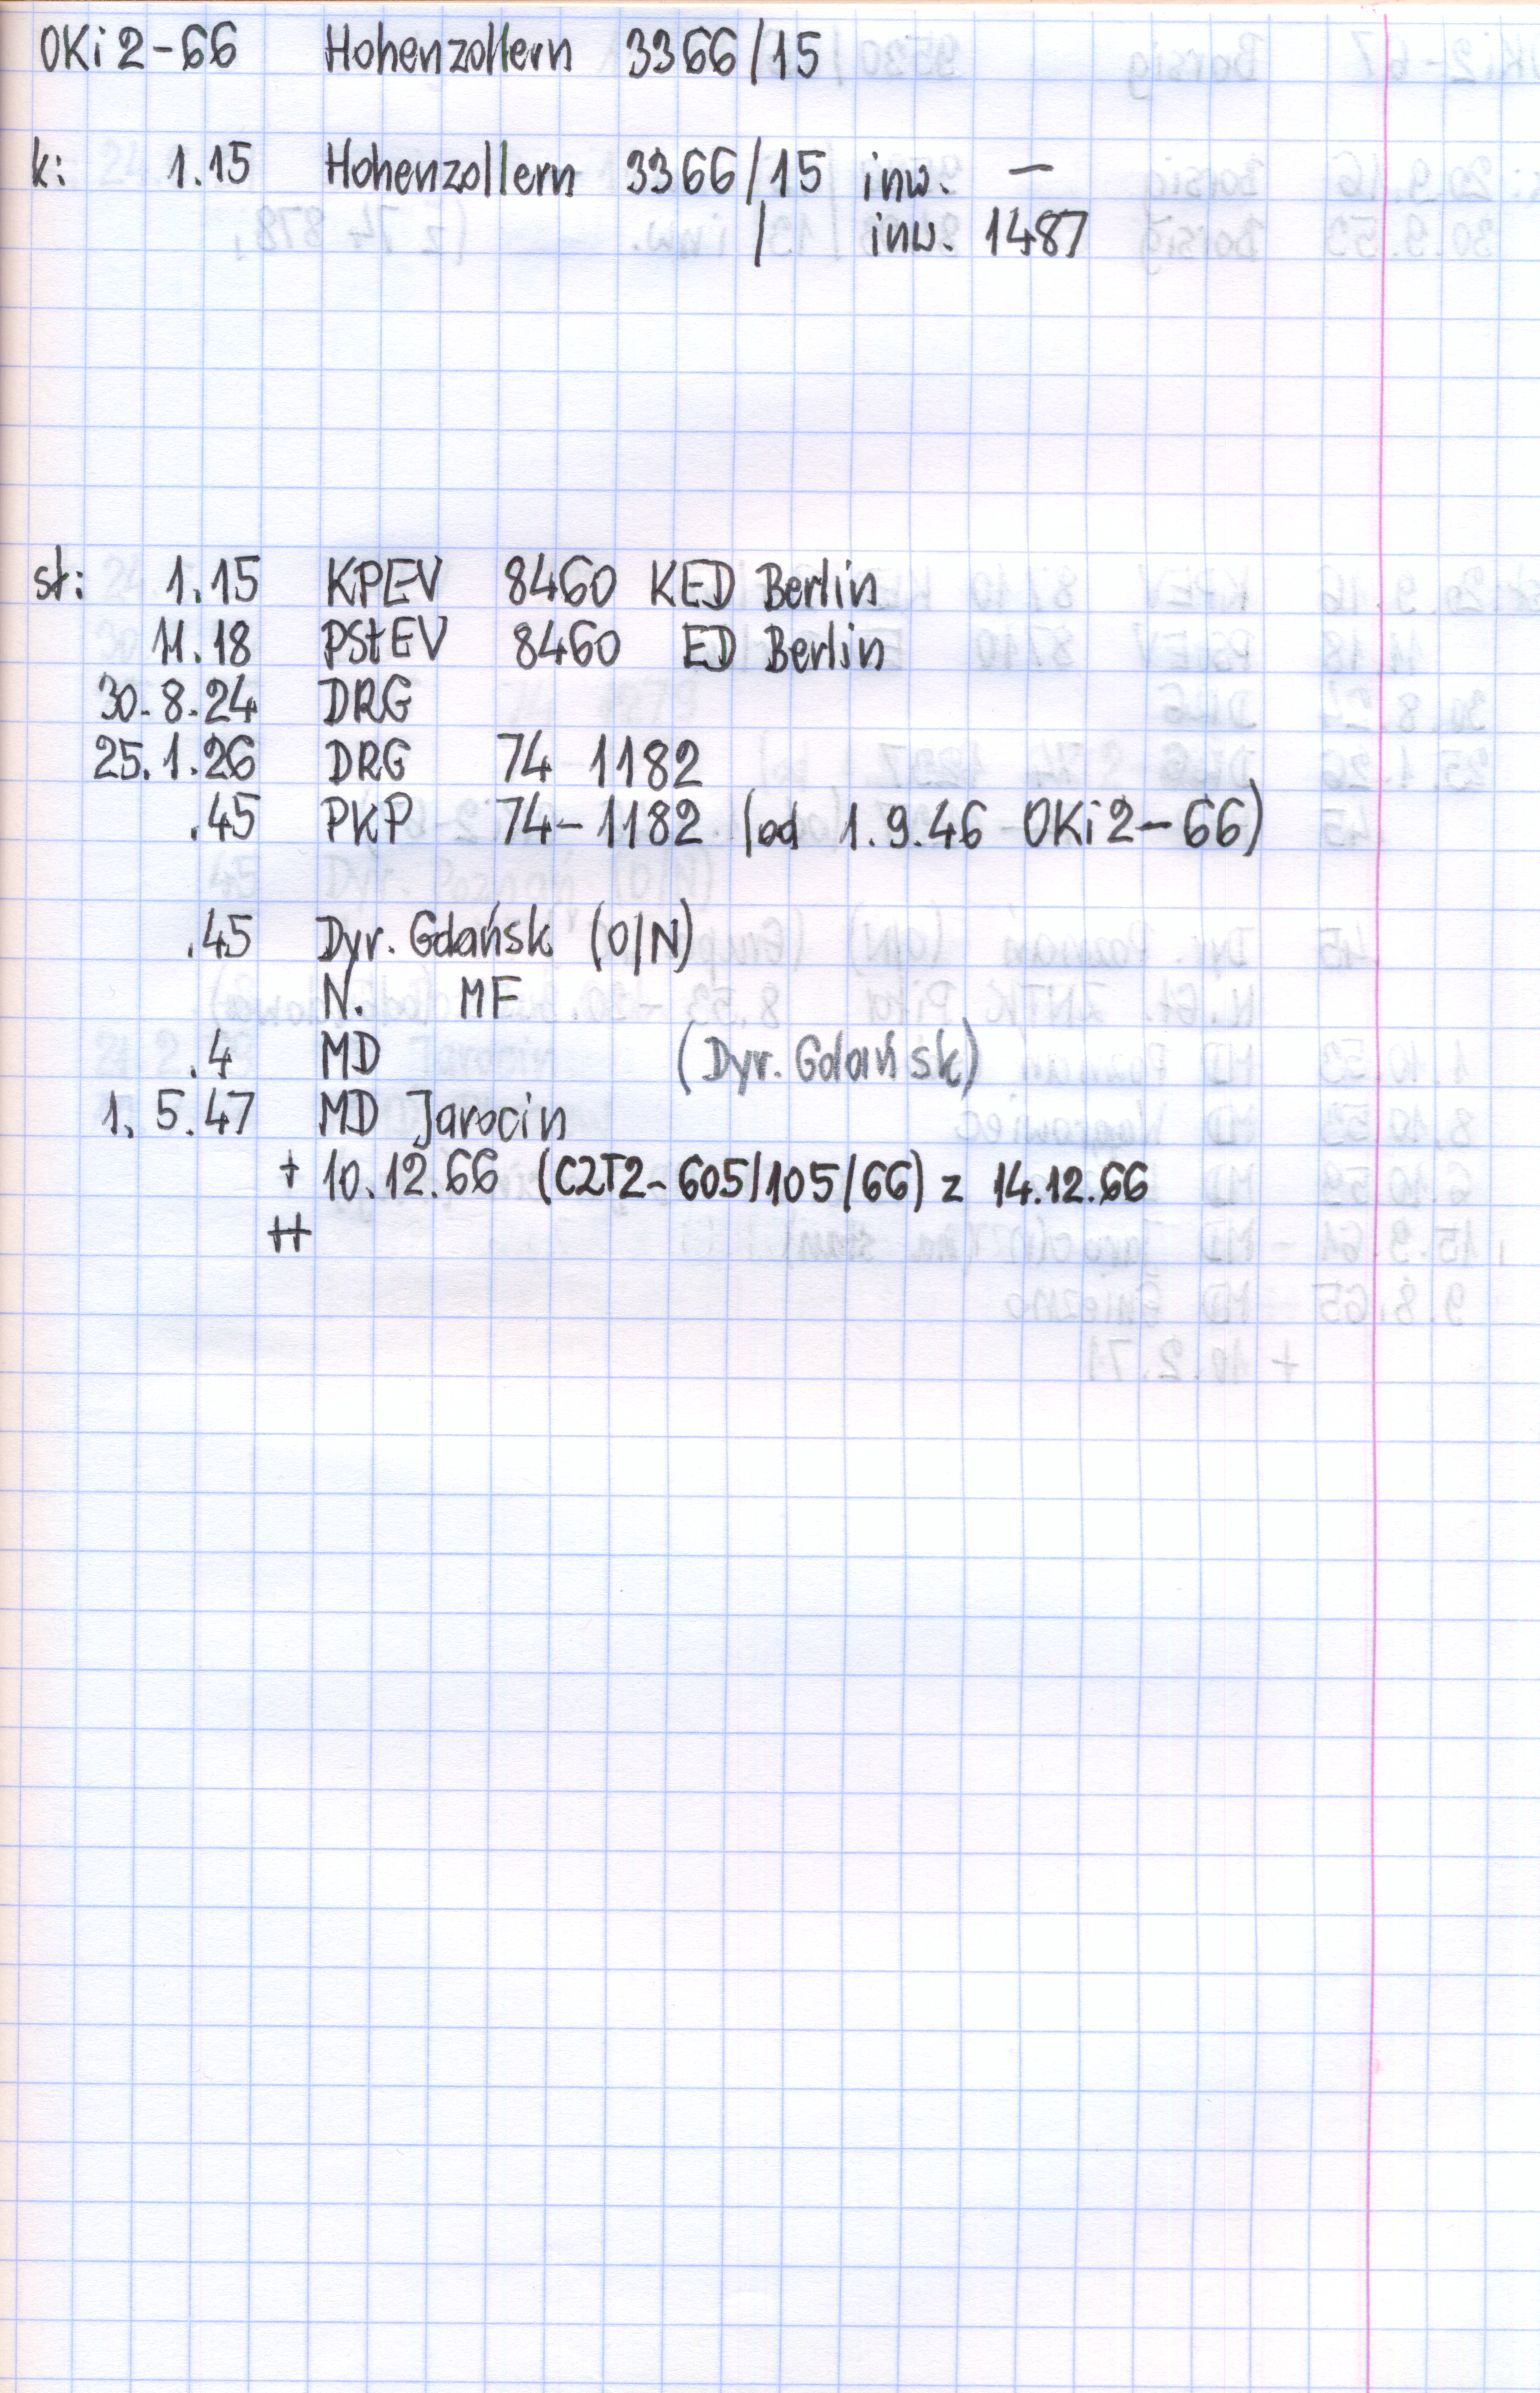 OKi2-66 Hohenzollern 3366/15
k: 1.15 Hohenzollern 3366/15 inw. —
/ inw. 1487
st: 1.15 KPEV 8460 KED Berlin
11.18 PStEV 8460 ED Berlin
30.8.24 DRG
25.1.26 DRG 74 1182
.45 PKP 74-1182 (od 1.9.46 OKi2-66)
.45 Dyr. Gdańsk (O/N)
N. MF
.4 MD (Dyr. Gdańsk)
1.5.47 MD Jarocin
+ 10.12.66 (CZT2-605/105/66) z 14.12.66
++